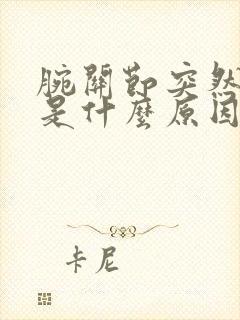 腕關節突然
是什麼原因
卡尼